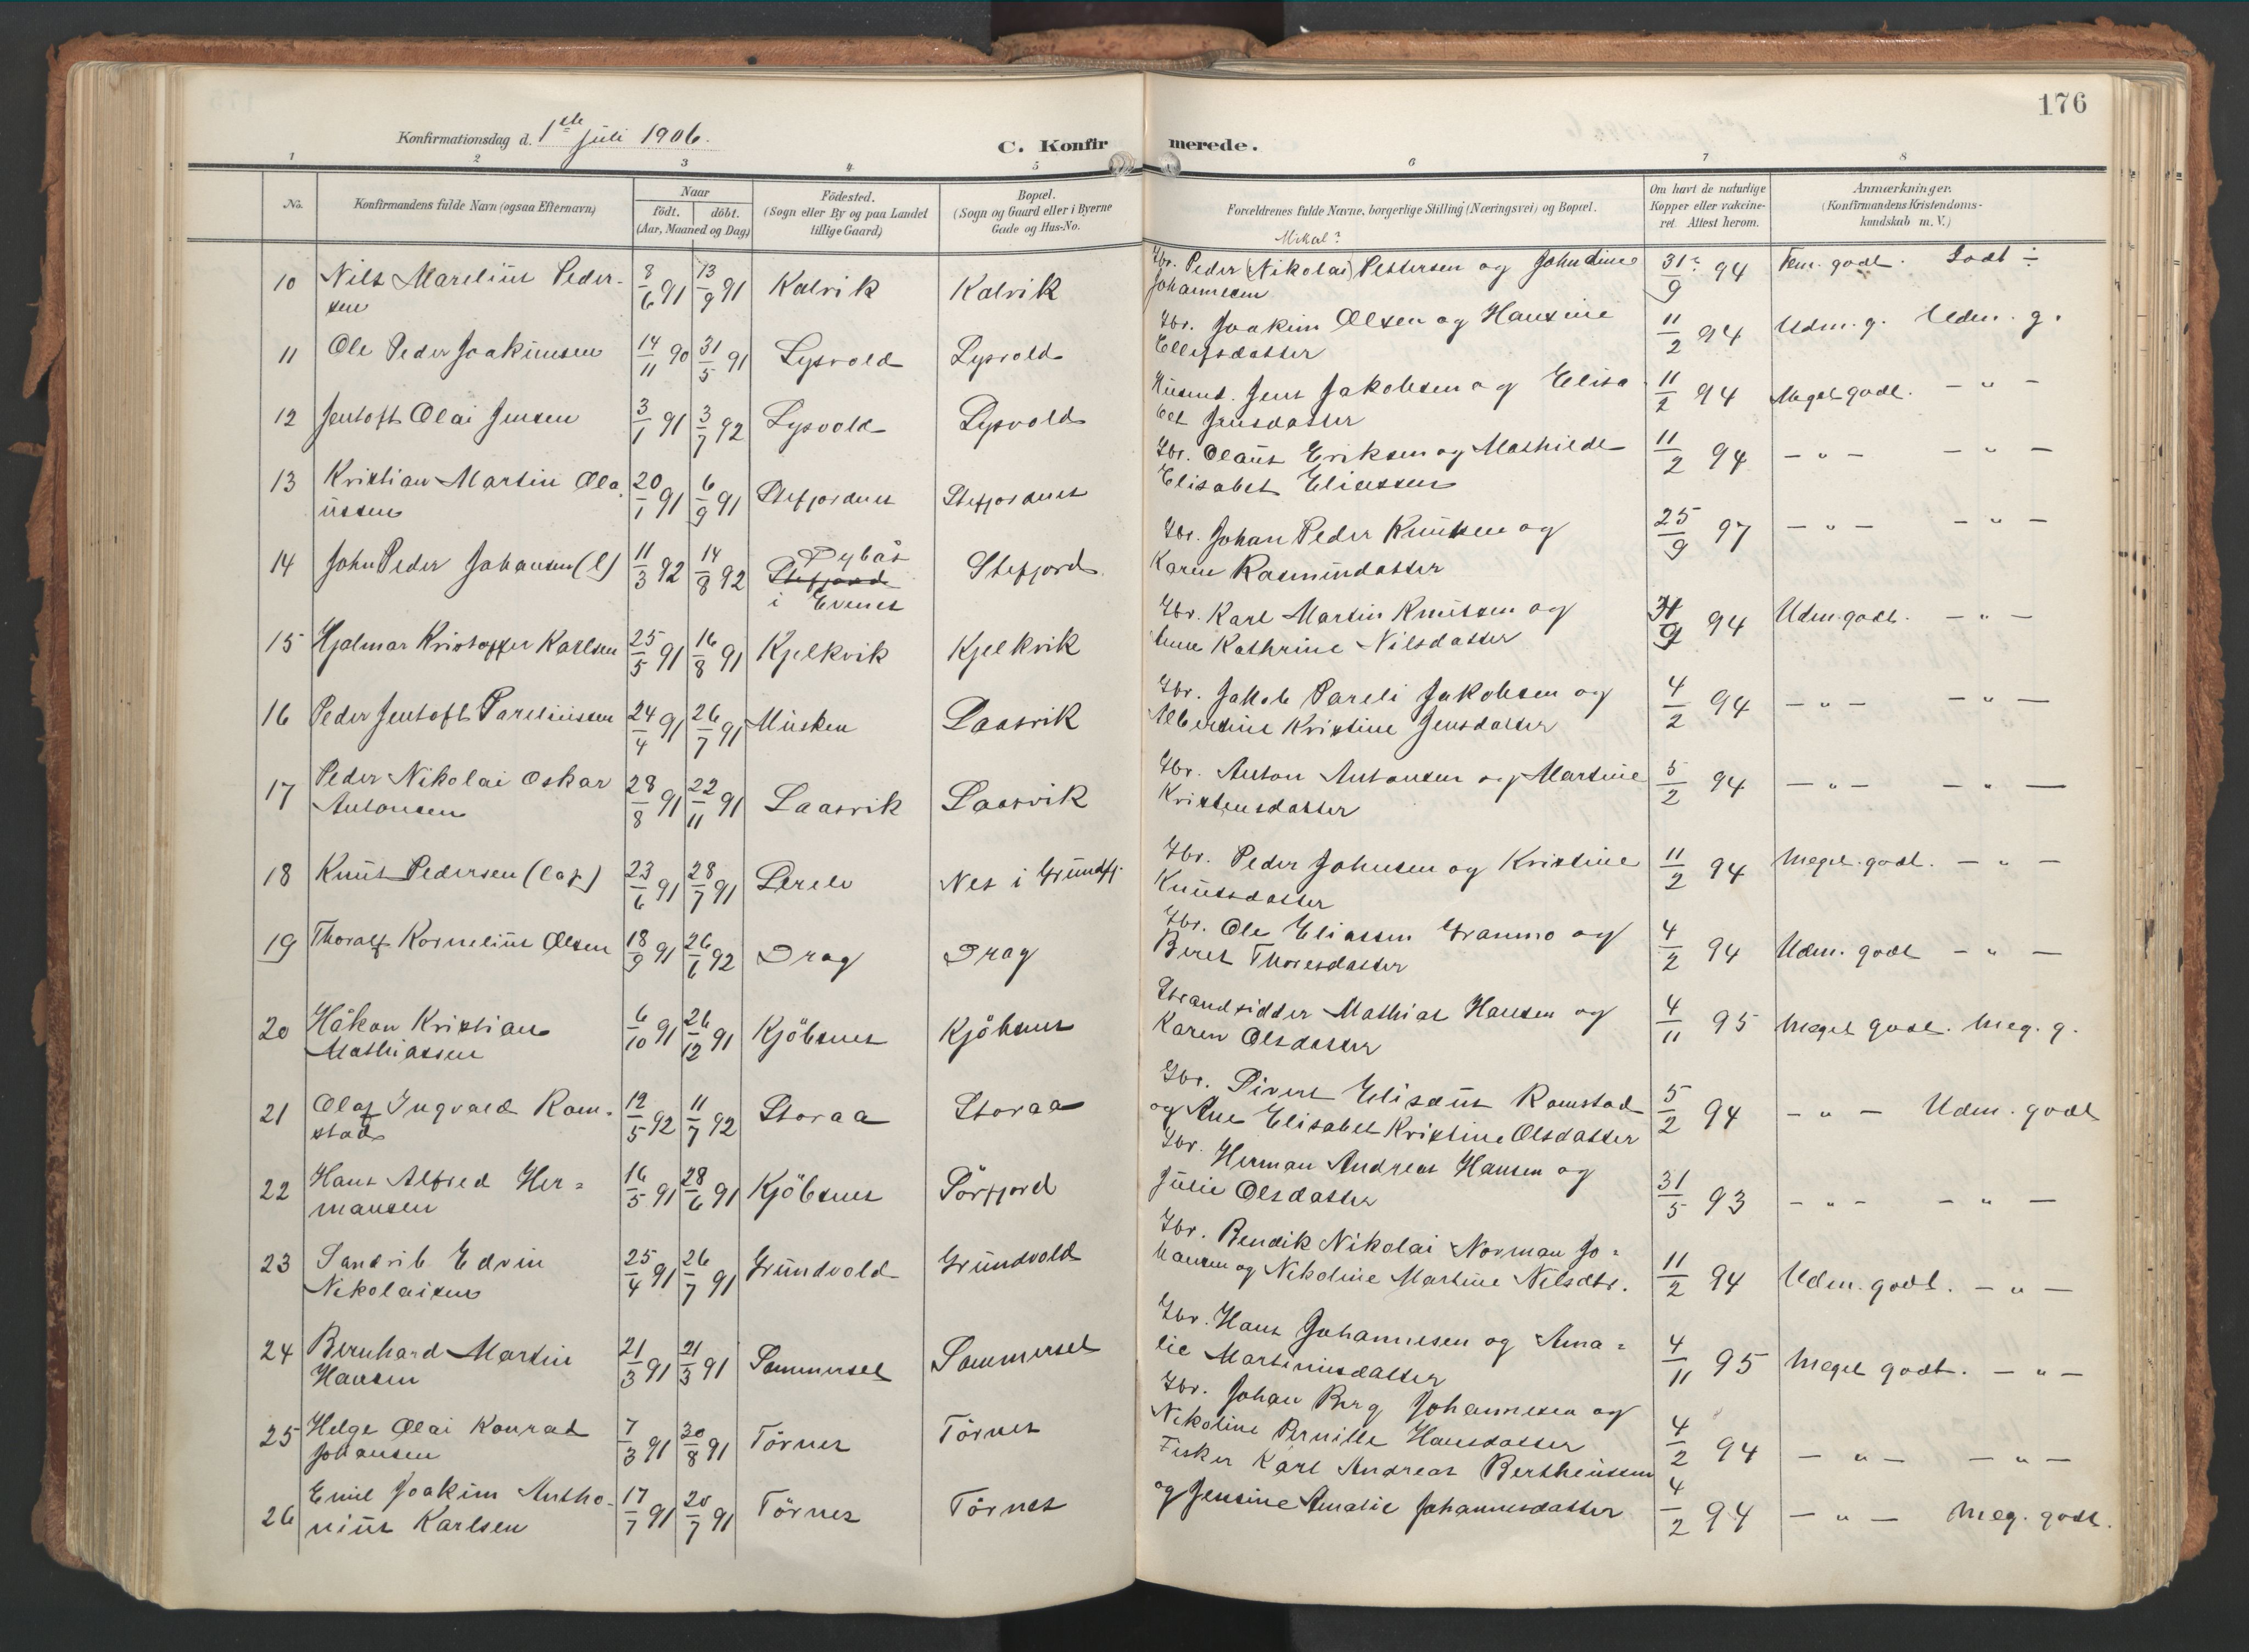 176
Konfirmationsdag d. 1ste Juli 1906.
C. Konfirmerede.
1 2 3 4 5 6 7 8
No.
Konfirmandens fulde Navn (ogsaa Efternavn)
Naar
født. døbt.
(Aar, Maaned og Dag)
Födested.
(Sogn eller By og paa Landet
tillige Gaard)
Bopæl.
(Sogn og Gaard eller i Byerne
Gade og Hus-No.
Forældrenes fulde Navne, borgerlige Stilling (Næringsvei) og Bopæl.
Om havt de naturlige
Kopper eller vakcine-
ret Attest herom.
Anmærkninger.
(Konfirmandens Kristendoms-
kundskab m. V.)
Mikal?
10 Nils Marelius Peder- 8/6 91 13/9 91 Kalvik Kalvik Gbr. Peder (Nikolai) Pettersen og Johndine 31?/9 94 Tem. godt. Godt ÷
sen Johannesen
11 Ole Peder Joakimsen 14/11 90 31/5 91 Lysvold Lysvold Gbr. Joakim Olsen og Hansine 11/2 94 Udm. g. Udm. g.
Ellefsdatter
12 Jentoft Olai Jensen 3/1 91 3/7 92 Lysvold Lysvold Husmd. Jens Jakobsen og Elisa- 11/2 94 Meget godt. - " -
bet Jensdatter
13 Kristian Martin Ola- 20/1 91 6/9 91 Stefjordnes Stefjordnes Gbr. Olaus Eriksen og Mathilde 11/2 94 - " - - " -
ussen Elisabet Eliassen
14 John Peder Johansen (l) 11/3 92 14/8 92 Tybås Stefjord Gbr. Johan Peder Knutsen og 25/9 97 - " - - " -
Stefjord
i Evenes Karen Rasmusdatter
15 Hjalmar Kristoffer Karlsen 25/5 91 16/8 91 Kjelkvik Kjelkvik Gbr. Karl Martin Knutsen og 31/9 94 Udm. godt. - " -
Anne Kathrine Nilsdatter
16 Peder Jentoft Pareliussen 24/4 91 26/7 91 Musken Laasvik Gbr. Jakob Pareli Jakobsen og 4/2 94 - " - - " -
Albertine Kristine Jensdatter
17 Peder Nikolai Oskar 28/8 91 22/11 91 Laasvik Laasvik Gbr. Anton Antonsen og Martine 5/2 94 - " - - " -
Antonsen Kristensdatter
18 Knut Pedersen (lap) 23/6 91 28/7 91 Lerelv Nes i Grundfj. Gbr. Peder Johnsen og Kristine 11/2 94 Meget godt. - " -
Knutsdatter
19 Thoralf Kornelius Olsen 18/9 91 26/6 92 Drag Drag Gbr. Ole Eliassen Granmo og 4/2 94 Udm. godt - " -
Beret Thoresdatter
20 Håkon Kristian 6/10 91 26/12 91 Kjöbsnes Kjöbsnes Strandsidder Mathias Hansen og 4/11 95 Meget godt. Meg. g.
Mathiassen Karen Olsdatter
21 Olaf Ingvald Ram- 12/5 92 11/7 92 Storaa Storaa Gbr. Sivert Elisæus Ramstad 5/2 94 - " - Udm. godt
stad og Ane Elisabet Kristine Olsdatter
22 Hans Alfred Her- 16/5 91 28/6 91 Kjöbsnes Sörfjord Gbr. Herman Andreas Hansen og 31/5 93 - " - - " -
mansen Julie Olsdatter
23 Sandrib Edvin 25/4 91 26/7 91 Grundvold Grundvold Gbr. Bendik Nikolai Norman Jo- 11/2 94 Udm. godt. - " -
Nikolaisen hansen og Nikoline Martine Nilsdtr.
24 Bernhard Martin 21/3 91 21/3 91 Sommerset Sommerset Gbr. Hans Johannesen og Ama- 4/11 95 Meget godt. - " -
Hansen lie Martinusdatter
25 Helge Olai Konrad 7/3 91 30/8 91 Törnes Törnes Gbr. Johan Berg Johannesen og 4/2 94 - " - - " -
Johansen Nikoline Pernille Hansdatter
26 Emil Joakim Antho- 17/7 91 20/7 91 Törnes Törnes Fisker Karl Andreas Bertheussen 4/2 94 - " - Meg. godt.
nius Karlsen og Jensine Amalie Johannesdatter